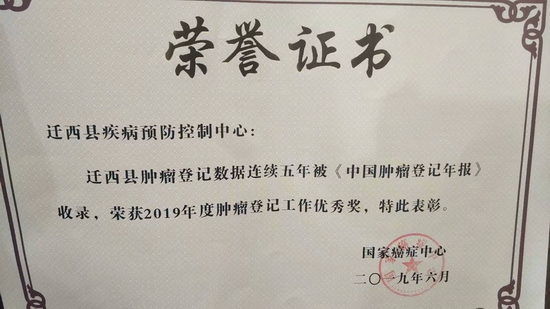 荣誉证书
迁西县疾病预防控制中心：
迁西县肿瘤登记数据连续五年被《中国肿瘤登记年报》
收录，荣获2019年度肿瘤登记工作优秀奖，特此表彰。
国家癌症中心
二〇一九年六月